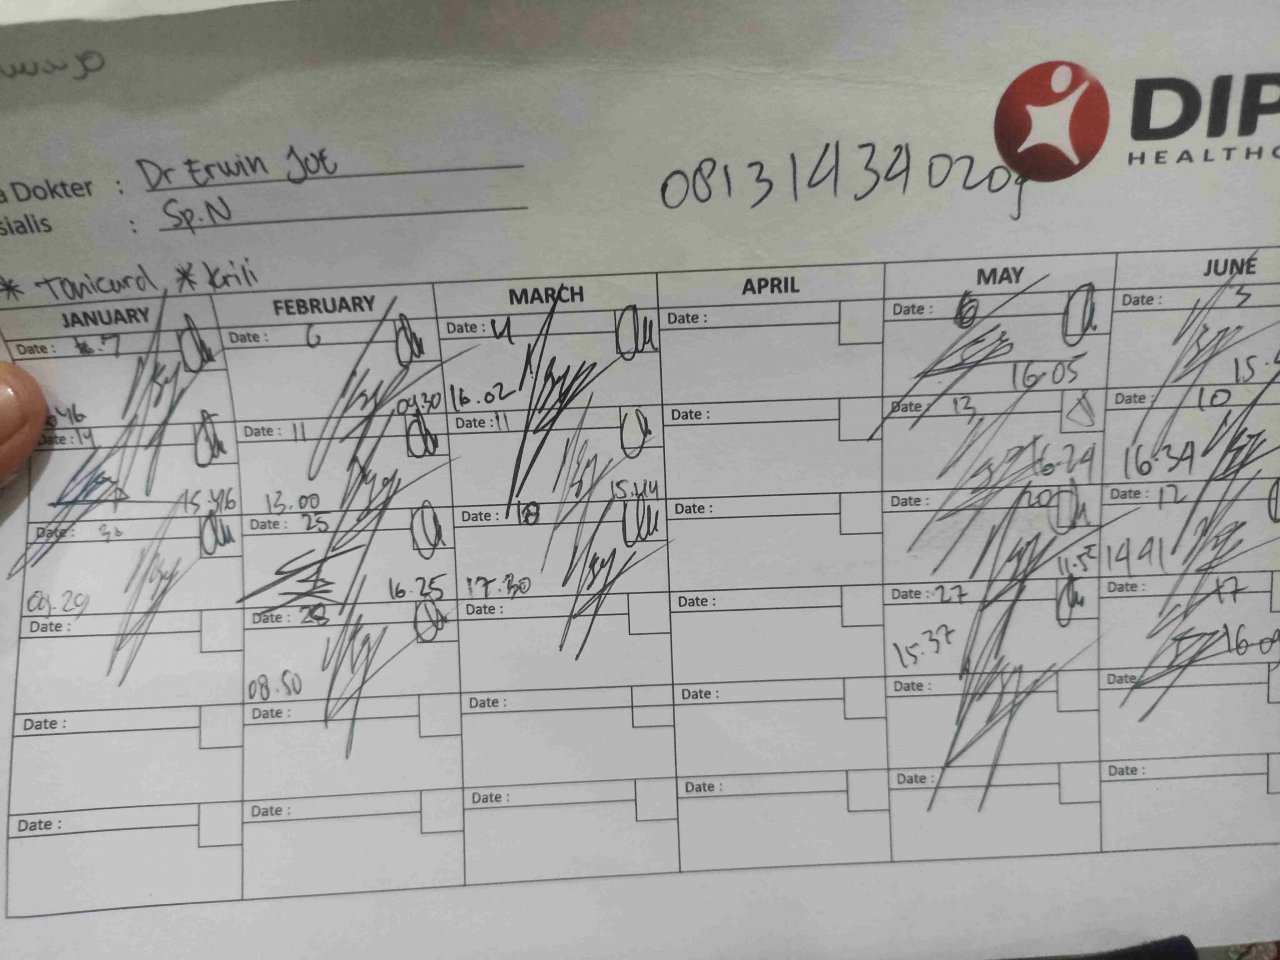 DIP
HEALTHC
a Dokter : Dr Erwin JOE
081314340209
sialis : Sp.N
* Tanicard, * Krili
JANUARY FEBRUARY MARCH APRIL MAY JUNE
Date : 7 Date : 6 Date : 4 Date : Date : 6 Date : 3
09.30 16.02 16.05 15.
Date : 14 Date : 11 Date : 11 Date : Date : 13 Date : 10
15.46 13.00 15.44 16.24 16.34
Date : Date : 25 Date : 18 Date : 20 Date : 12
09.29 16.25 17.30 11.52 14.41
Date : Date : 28 Date : Date : Date : 27 Date : 17
08.50 15.37 16.0
Date : Date : Date : Date : Date : Date
Date : Date : Date : Date : Date : Date :